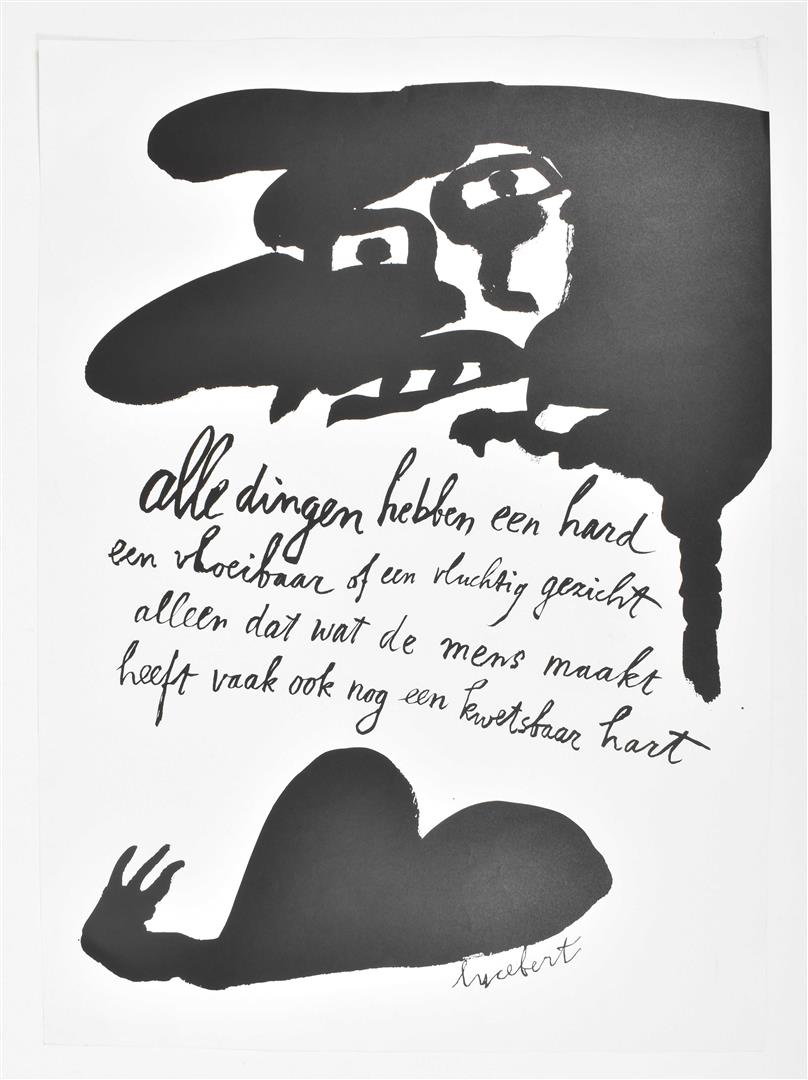 alle dingen hebben een hard
een vloeibaar of een vluchtig gezicht
alleen dat wat de mens maakt
heeft vaak ook nog een kwetsbaar hart
lucebert